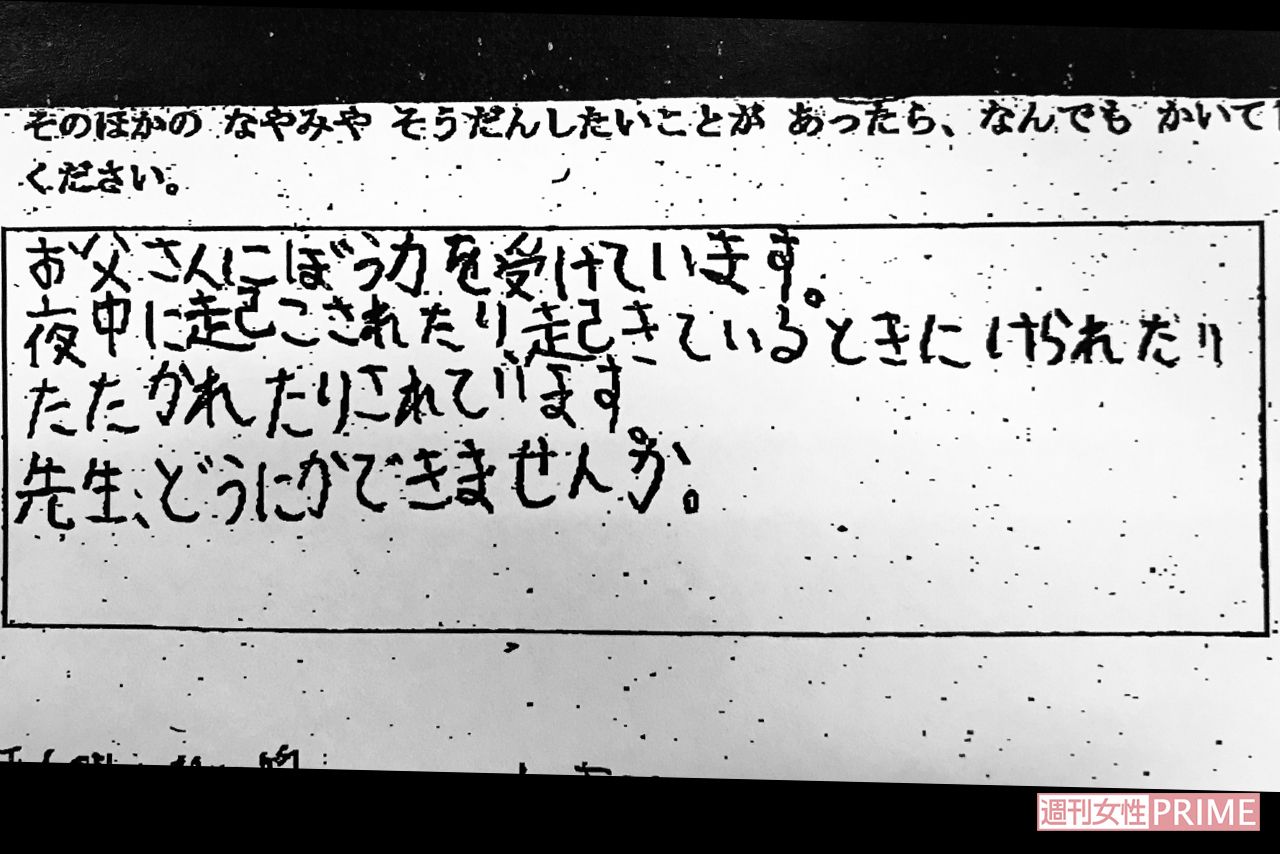 そのほかの なやみや そうだんしたいことが あったら、なんでも かいて
ください。
お父さんにぼう力を受けています。
夜中に起こされたり起きているときにけられたり
たたかれたりされています。
先生、どうにかできませんか。
週刊女性PRIME